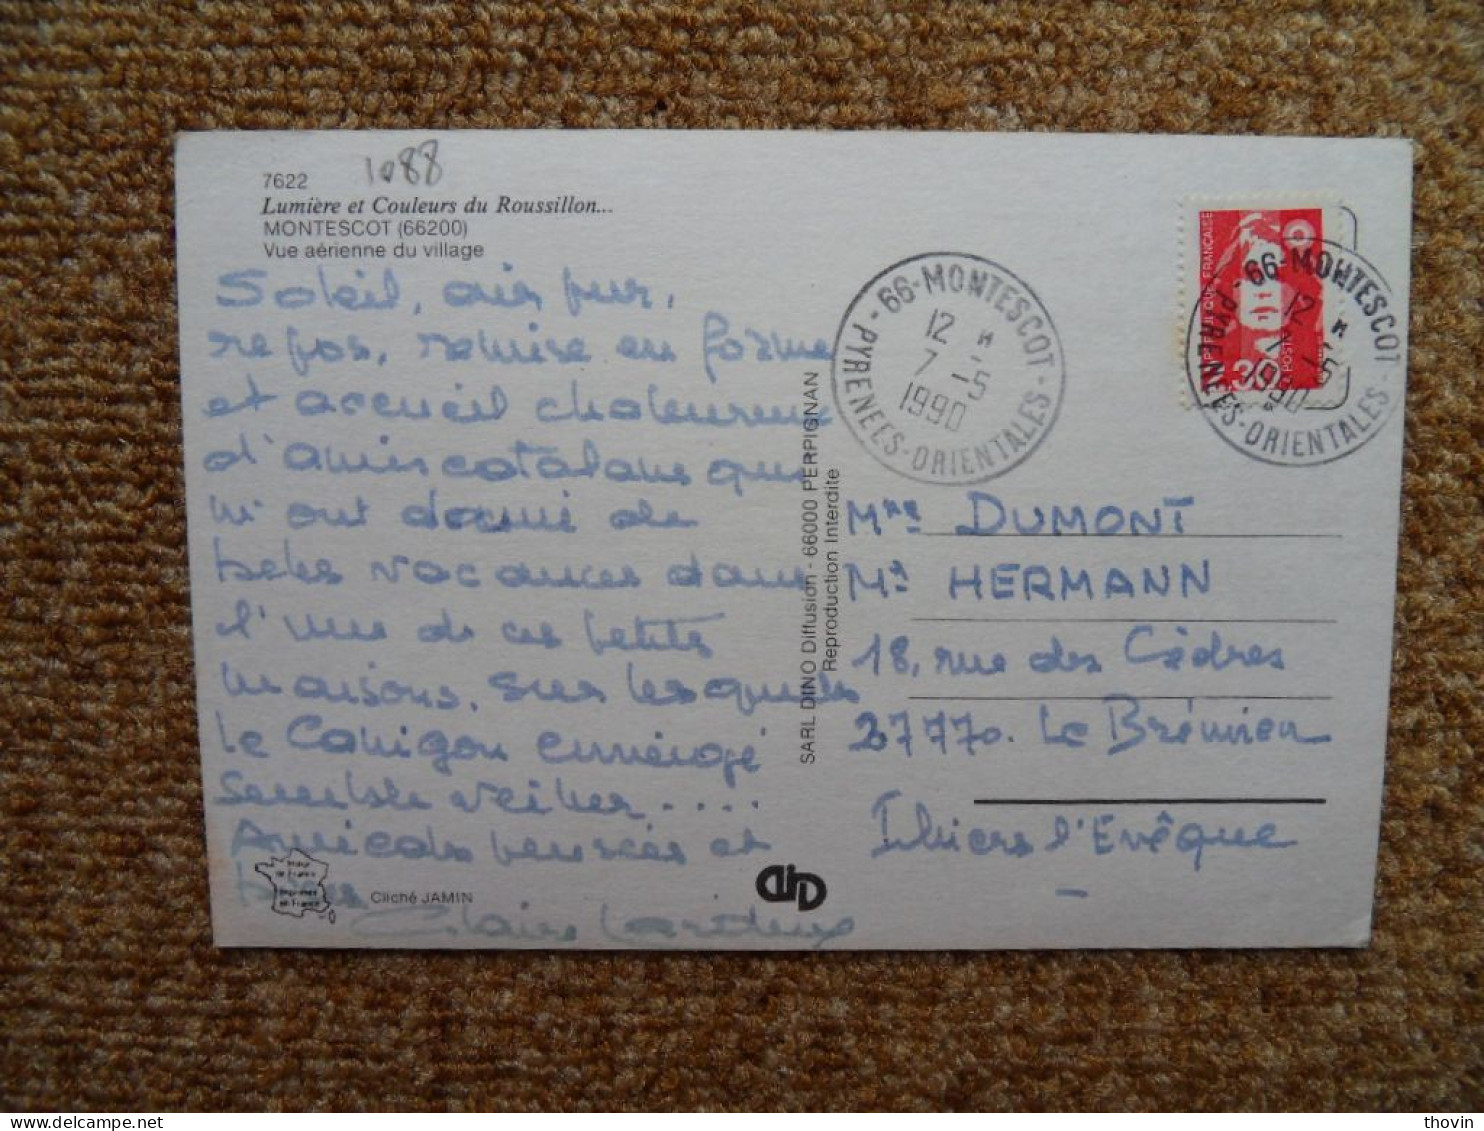 7622
1088
Lumière et Couleurs du Roussillon...
MONTESCOT (66200)
Vue aérienne du village
Soleil, air pur,
repos, remise en forme
et accueil chaleureux
d'amis catalans qui
m'ont donné de
belles vacances dans
l'une de ces petites
maisons, sur lesquelles
le Canigou enneigé
semble veiller.....
Amicales pensées et
Claire
Cliché JAMIN
SARL DINO Diffusion - 66000 PERPIGNAN
Reproduction Interdite
66-MONTESCOT
12 H
7 -5
1990
PYRENEES-ORIENTALES
REPUBLIQUE FRANÇAISE
66-MONTESCOT
12 H
7 -5
1990
PYRENEES-ORIENTALES
Mme DUMONT
Mr HERMANN
18, rue des Cèdres
27770. Le Brémien
Illiers l'Evêque
thovin